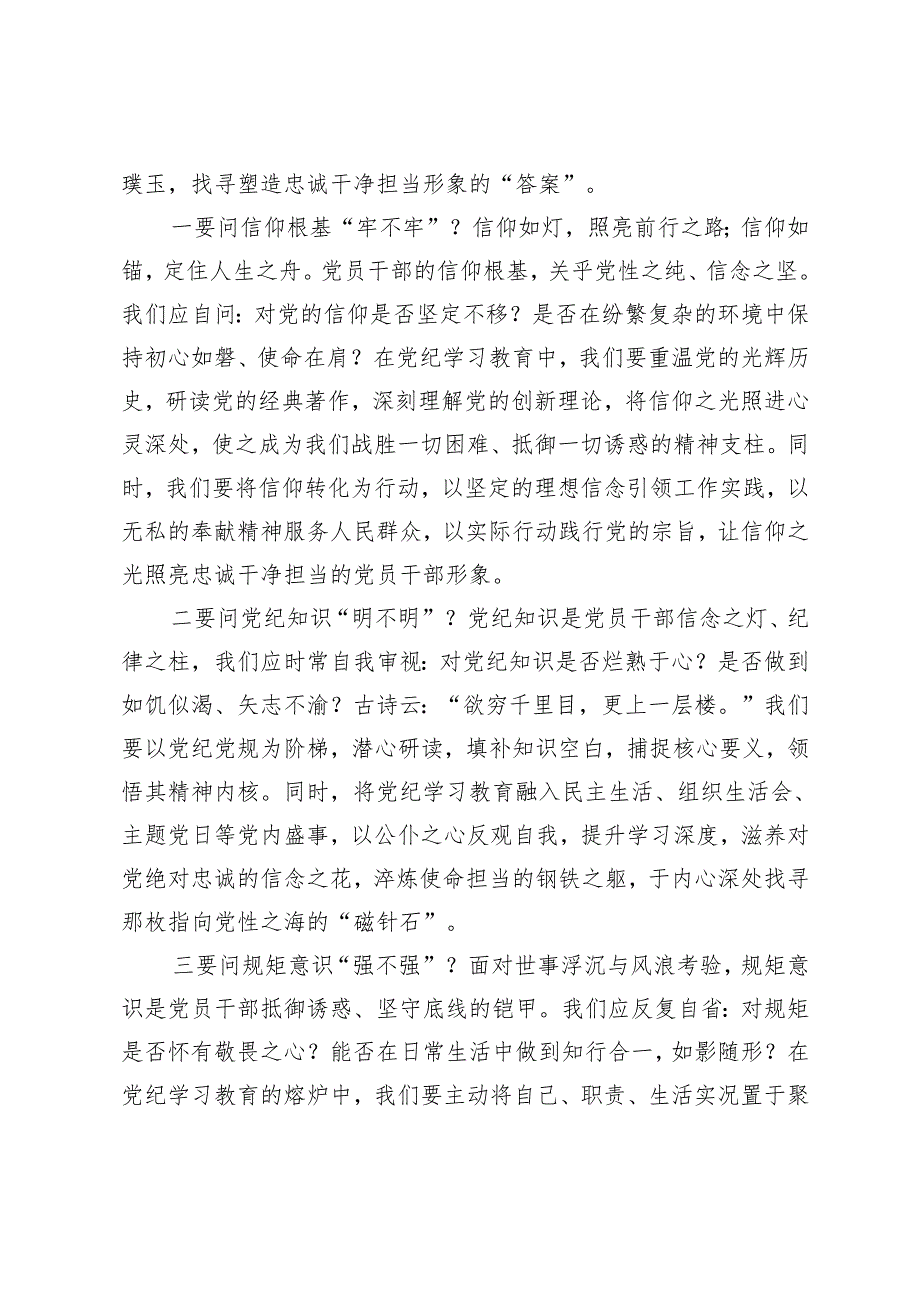 璞玉，找寻塑造忠诚干净担当形象的“答案”。
一要问信仰根基“牢不牢”？信仰如灯，照亮前行之路；信仰如
锚，定住人生之舟。党员干部的信仰根基，关乎党性之纯、信念之坚。
我们应自问：对党的信仰是否坚定不移？是否在纷繁复杂的环境中保
持初心如磐、使命在肩？在党纪学习教育中，我们要重温党的光辉历
史，研读党的经典著作，深刻理解党的创新理论，将信仰之光照进心
灵深处，使之成为我们战胜一切困难、抵御一切诱惑的精神支柱。同
时，我们要将信仰转化为行动，以坚定的理想信念引领工作实践，以
无私的奉献精神服务人民群众，以实际行动践行党的宗旨，让信仰之
光照亮忠诚干净担当的党员干部形象。
二要问党纪知识“明不明”？党纪知识是党员干部信念之灯、纪
律之柱，我们应时常自我审视：对党纪知识是否烂熟于心？是否做到
如饥似渴、矢志不渝？古诗云：“欲穷千里目，更上一层楼。”我们
要以党纪党规为阶梯，潜心研读，填补知识空白，捕捉核心要义，领
悟其精神内核。同时，将党纪学习教育融入民主生活、组织生活会、
主题党日等党内盛事，以公仆之心反观自我，提升学习深度，滋养对
党绝对忠诚的信念之花，淬炼使命担当的钢铁之躯，于内心深处找寻
那枚指向党性之海的“磁针石”。
三要问规矩意识“强不强”？面对世事浮沉与风浪考验，规矩意
识是党员干部抵御诱惑、坚守底线的铠甲。我们应反复自省：对规矩
是否怀有敬畏之心？能否在日常生活中做到知行合一，如影随形？在
党纪学习教育的熔炉中，我们要主动将自己、职责、生活实况置于聚